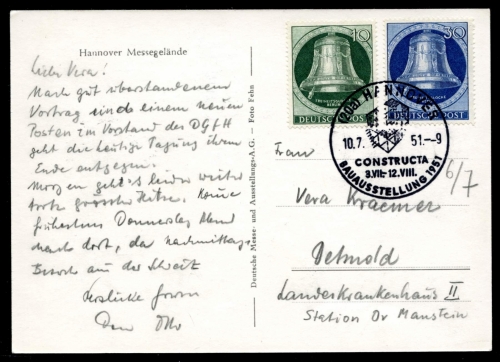 Hannover Messegelände
Liebe Vera!
Nach gut überstandenem
Vortrag und einem neuen
Posten im Vorstand der DGfH
geht die heutige Tagung ihrem
Ende entgegen.
Morgen geht es leider weiter
trotz grosser Hitze. Komme
frühestens Donnerstag Abend
nach dort, da nachmittags
Besuch aus der Schweiz
Herzliche
Dein Otto
Deutsche Messe- und Ausstellungs-A.G. - Foto Fehn
10
FREIHEITSGLOCKE
BERLIN
DEUTSCHE POST
30
DEUTSCHE POST
HANNOVER
10.7. 51.-9
CONSTRUCTA
3.VII.-12.VIII.
BAUAUSSTELLUNG 1951
6/7
Frau
Vera Kraemer
Detmold
Landeskrankenhaus II
Station Dr Manstein